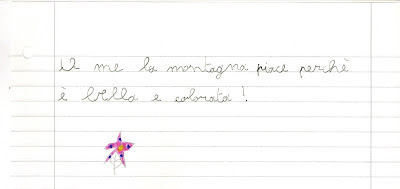 A me la montagna piace perchè
è bella e colorata!